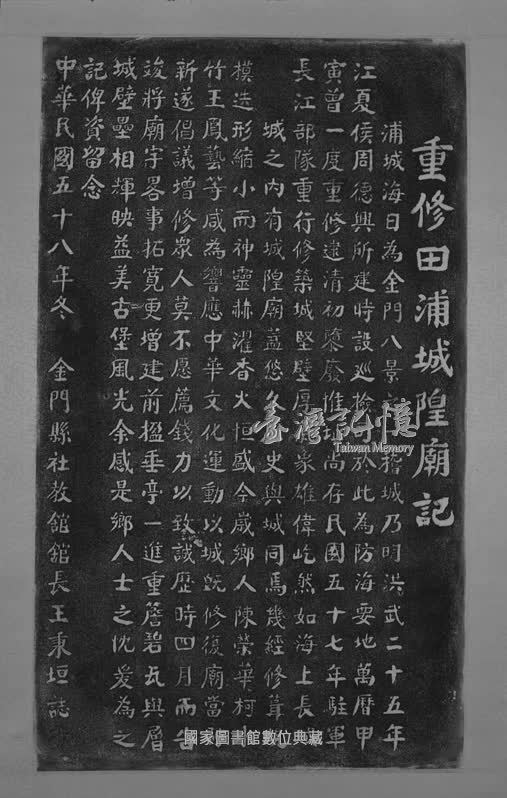 重修田浦城隍廟記
浦城海日為金門八景城乃明洪武二十五年
江夏侯周德興所建時設巡檢於此為防海要地萬曆甲
寅曾一度重修逮清初隳廢惟址尚存民國五十七年駐軍
長江部隊重行修築城堅壁厚象雄偉屹然如海上長
城之內有城隍廟葢悠久史與城同焉幾經修葺
模迭形縮小而神靈赫濯香火恒盛今歲鄉人陳榮華柯
竹王鳳藝等咸為響應中華文化運動以城旣修復廟當
新遂倡議增修眾人莫不愿薦錢力以致誠歷時四月而告
竣將廟宇畧事拓寬更增建前楹垂亭一進重簷碧瓦與層
城壁壘相輝映益美古堡風光余感是鄉人士之忱爰為之
記俾資留念
中華民國五十八年冬 金門縣社教館館長王秉垣誌
臺灣記憶
Taiwan Memory
國家圖書館數位典藏